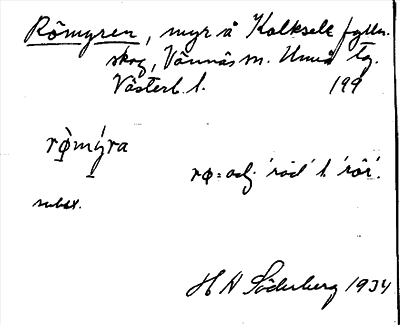 Römyren, myr å Kolksele fylln.
skog, Vännäs sn. Umeå tg.
Västerb. l. 199
rø̀mýra
rø = adj. 'röd' l. 'rör'.
subst.
H A Söderberg 1934